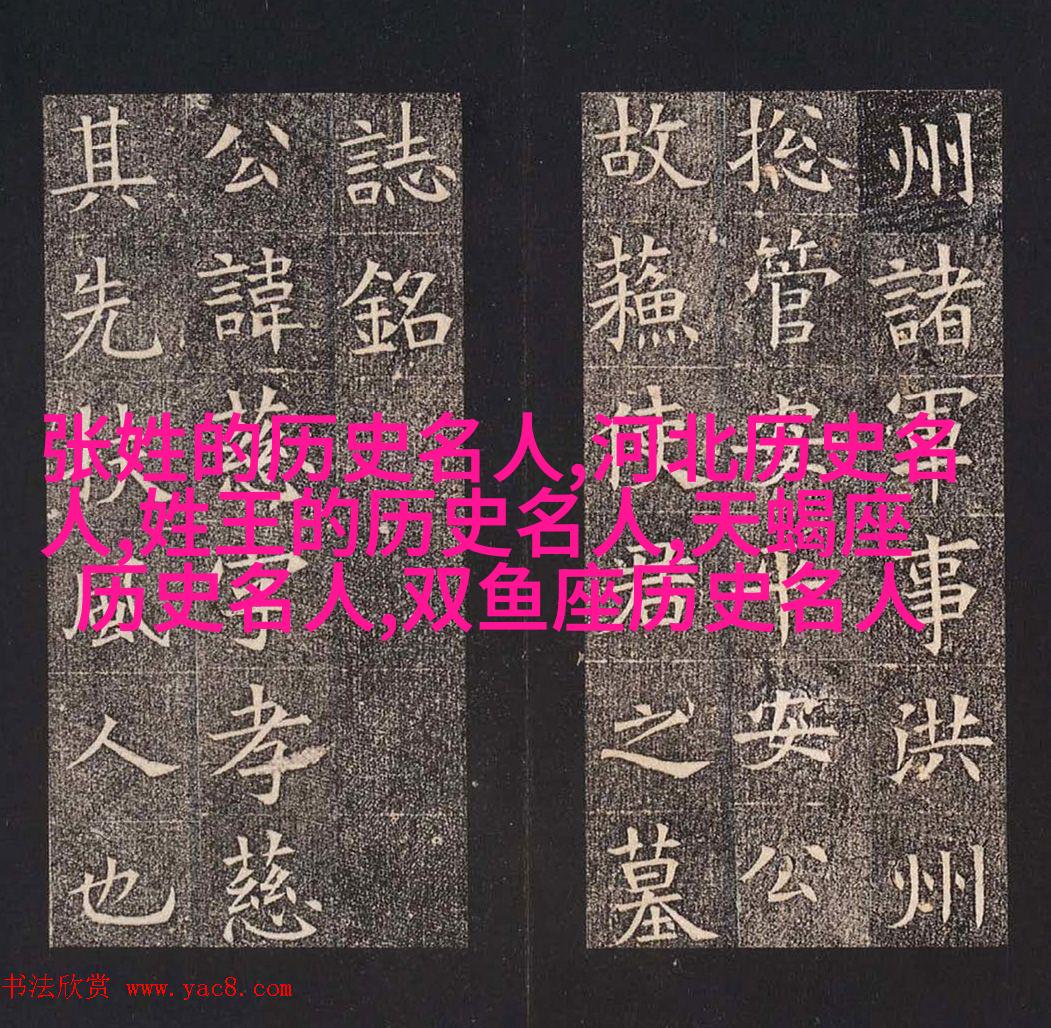 州諸軍事洪州
捴管安平安公
故蘓使君之墓
誌銘
公諱慈字孝慈
其先扶風人也
张姓的历史名人,河北历史名
人,姓王的历史名人,天蝎座
历史名人,双鱼座历史名人
书法欣赏 www.yac8.com